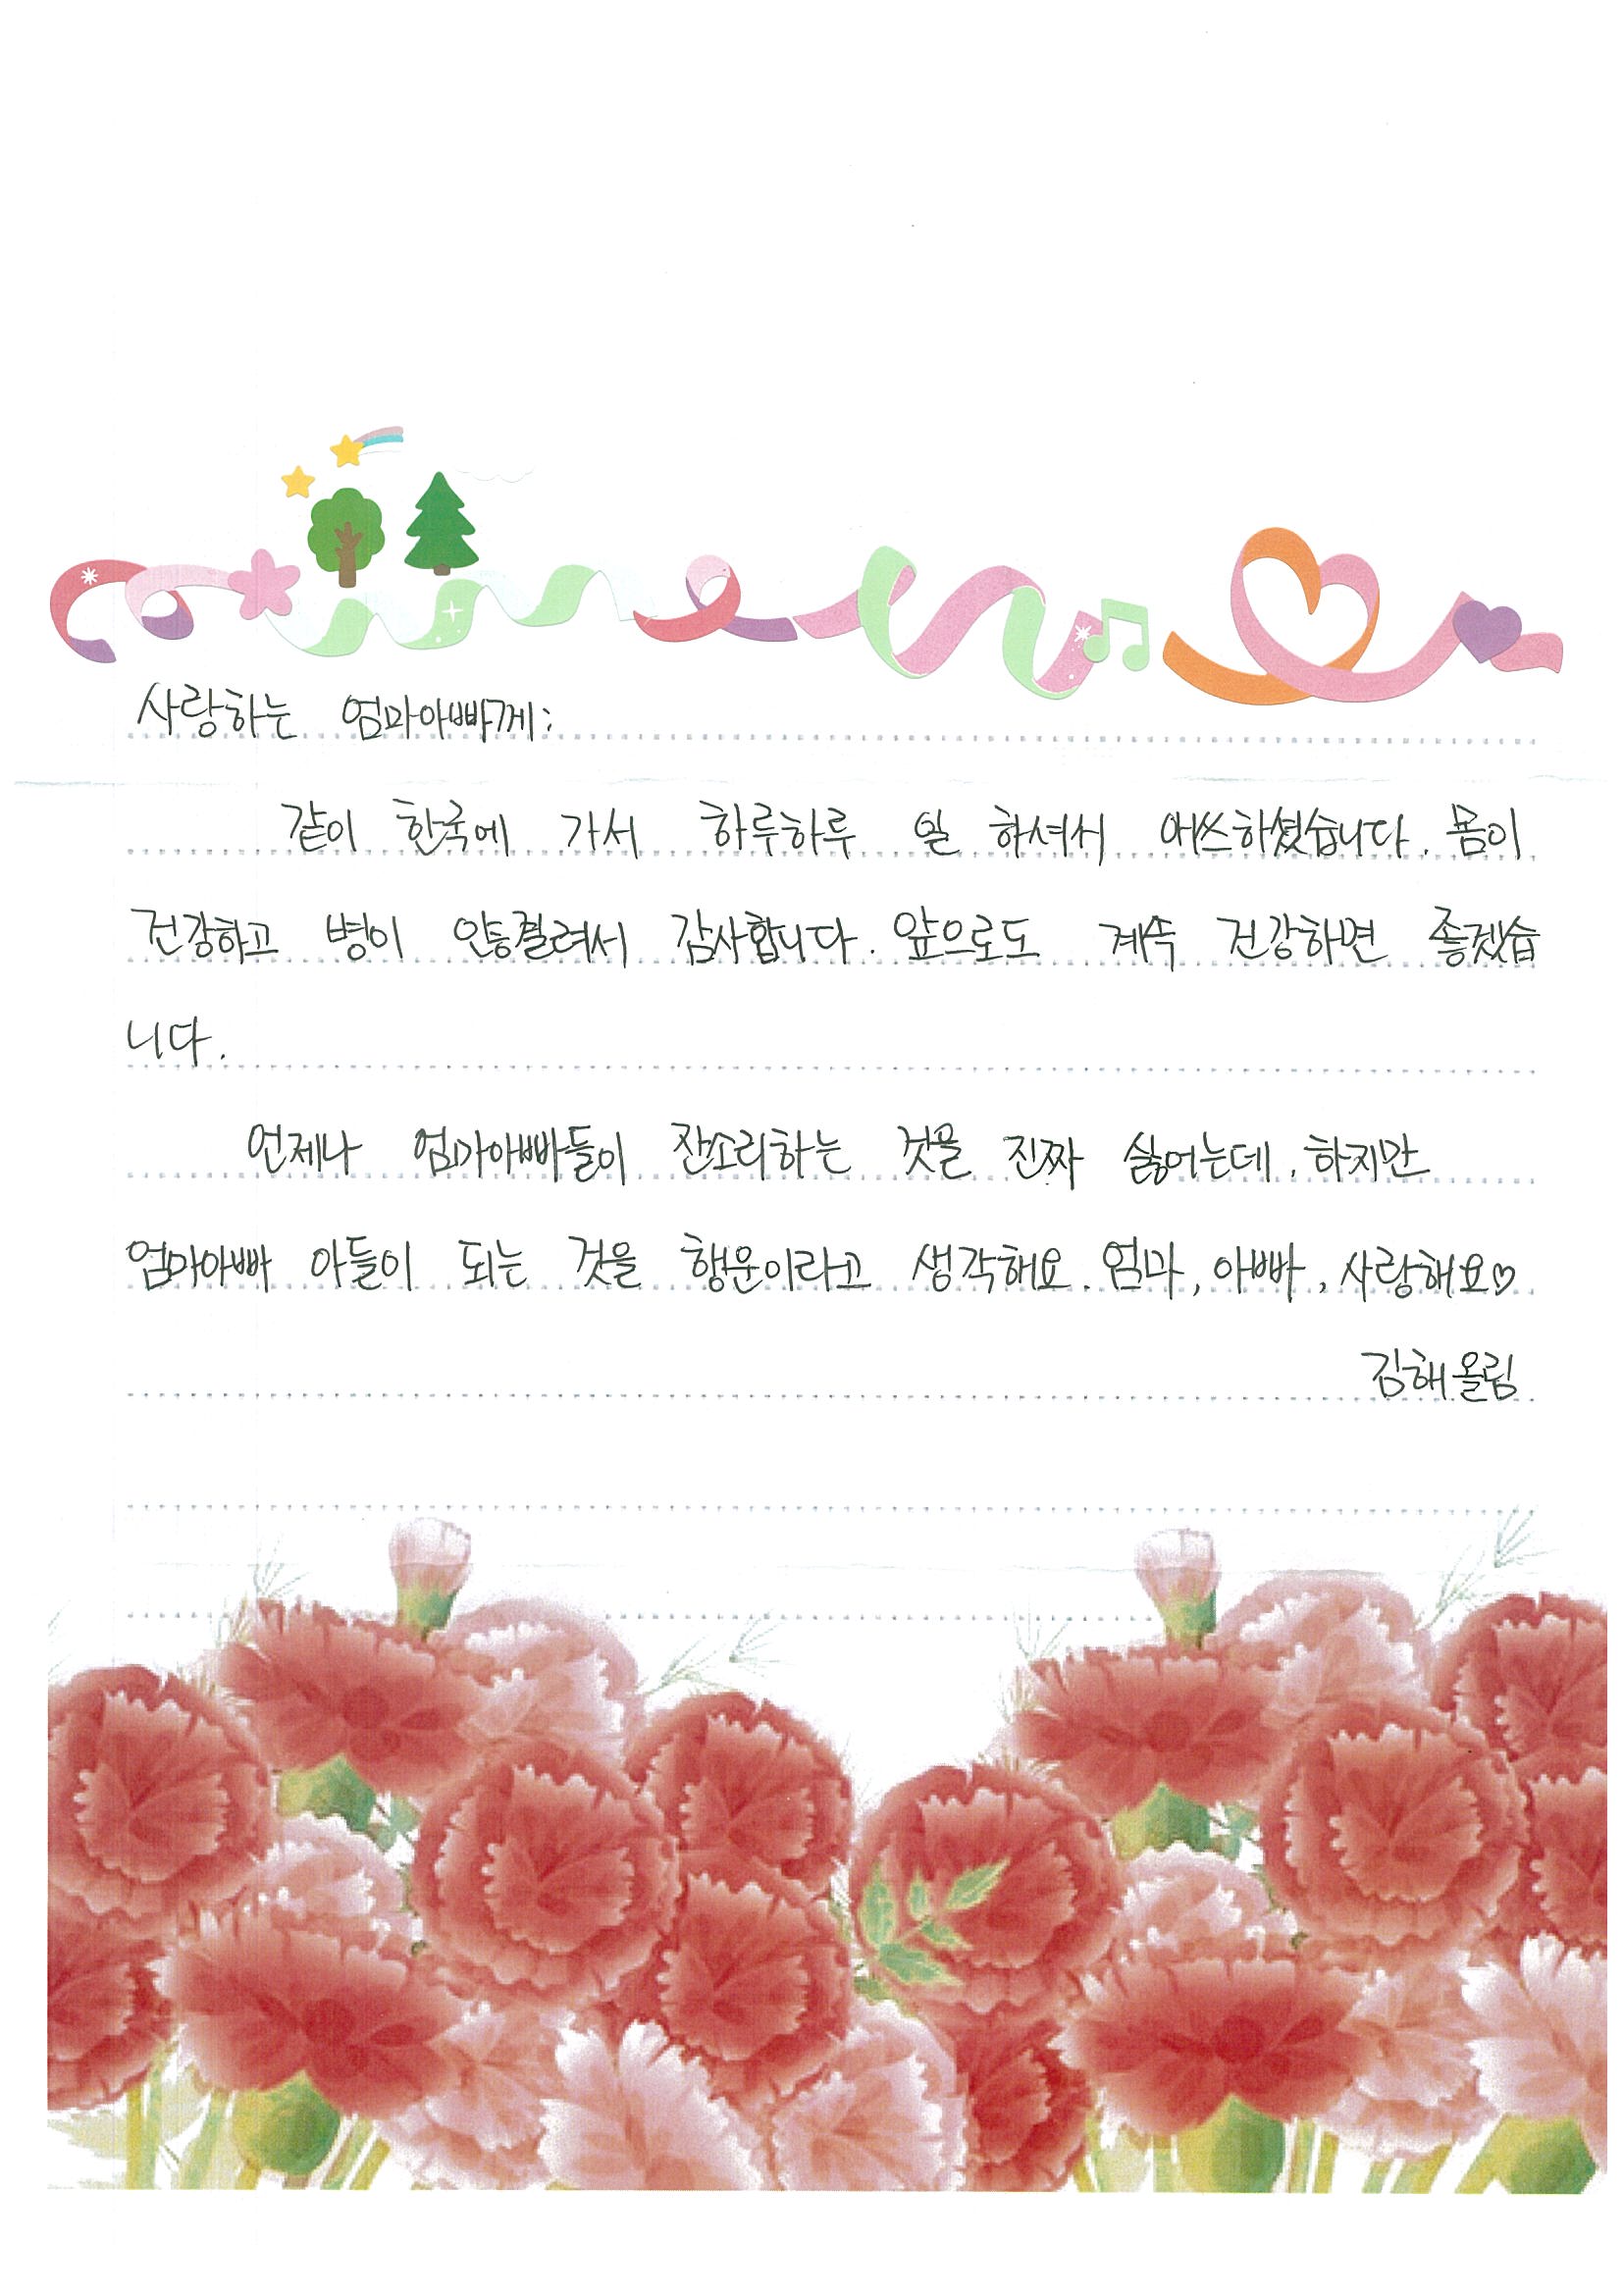 사랑하는 엄마아빠께:
같이 한국에 가서 하루하루 일 하셔서 애쓰하셨습니다. 몸이
건강하고 병이 안통걸려서 감사합니다. 앞으로도 계속 건강하면 좋겠습
니다.
언제나 엄마아빠들이 잔소리하는 것을 진짜 싫어는데, 하지만
엄마아빠 아들이 되는 것을 행운이라고 생각해요. 엄마, 아빠, 사랑해요♡
김해올림